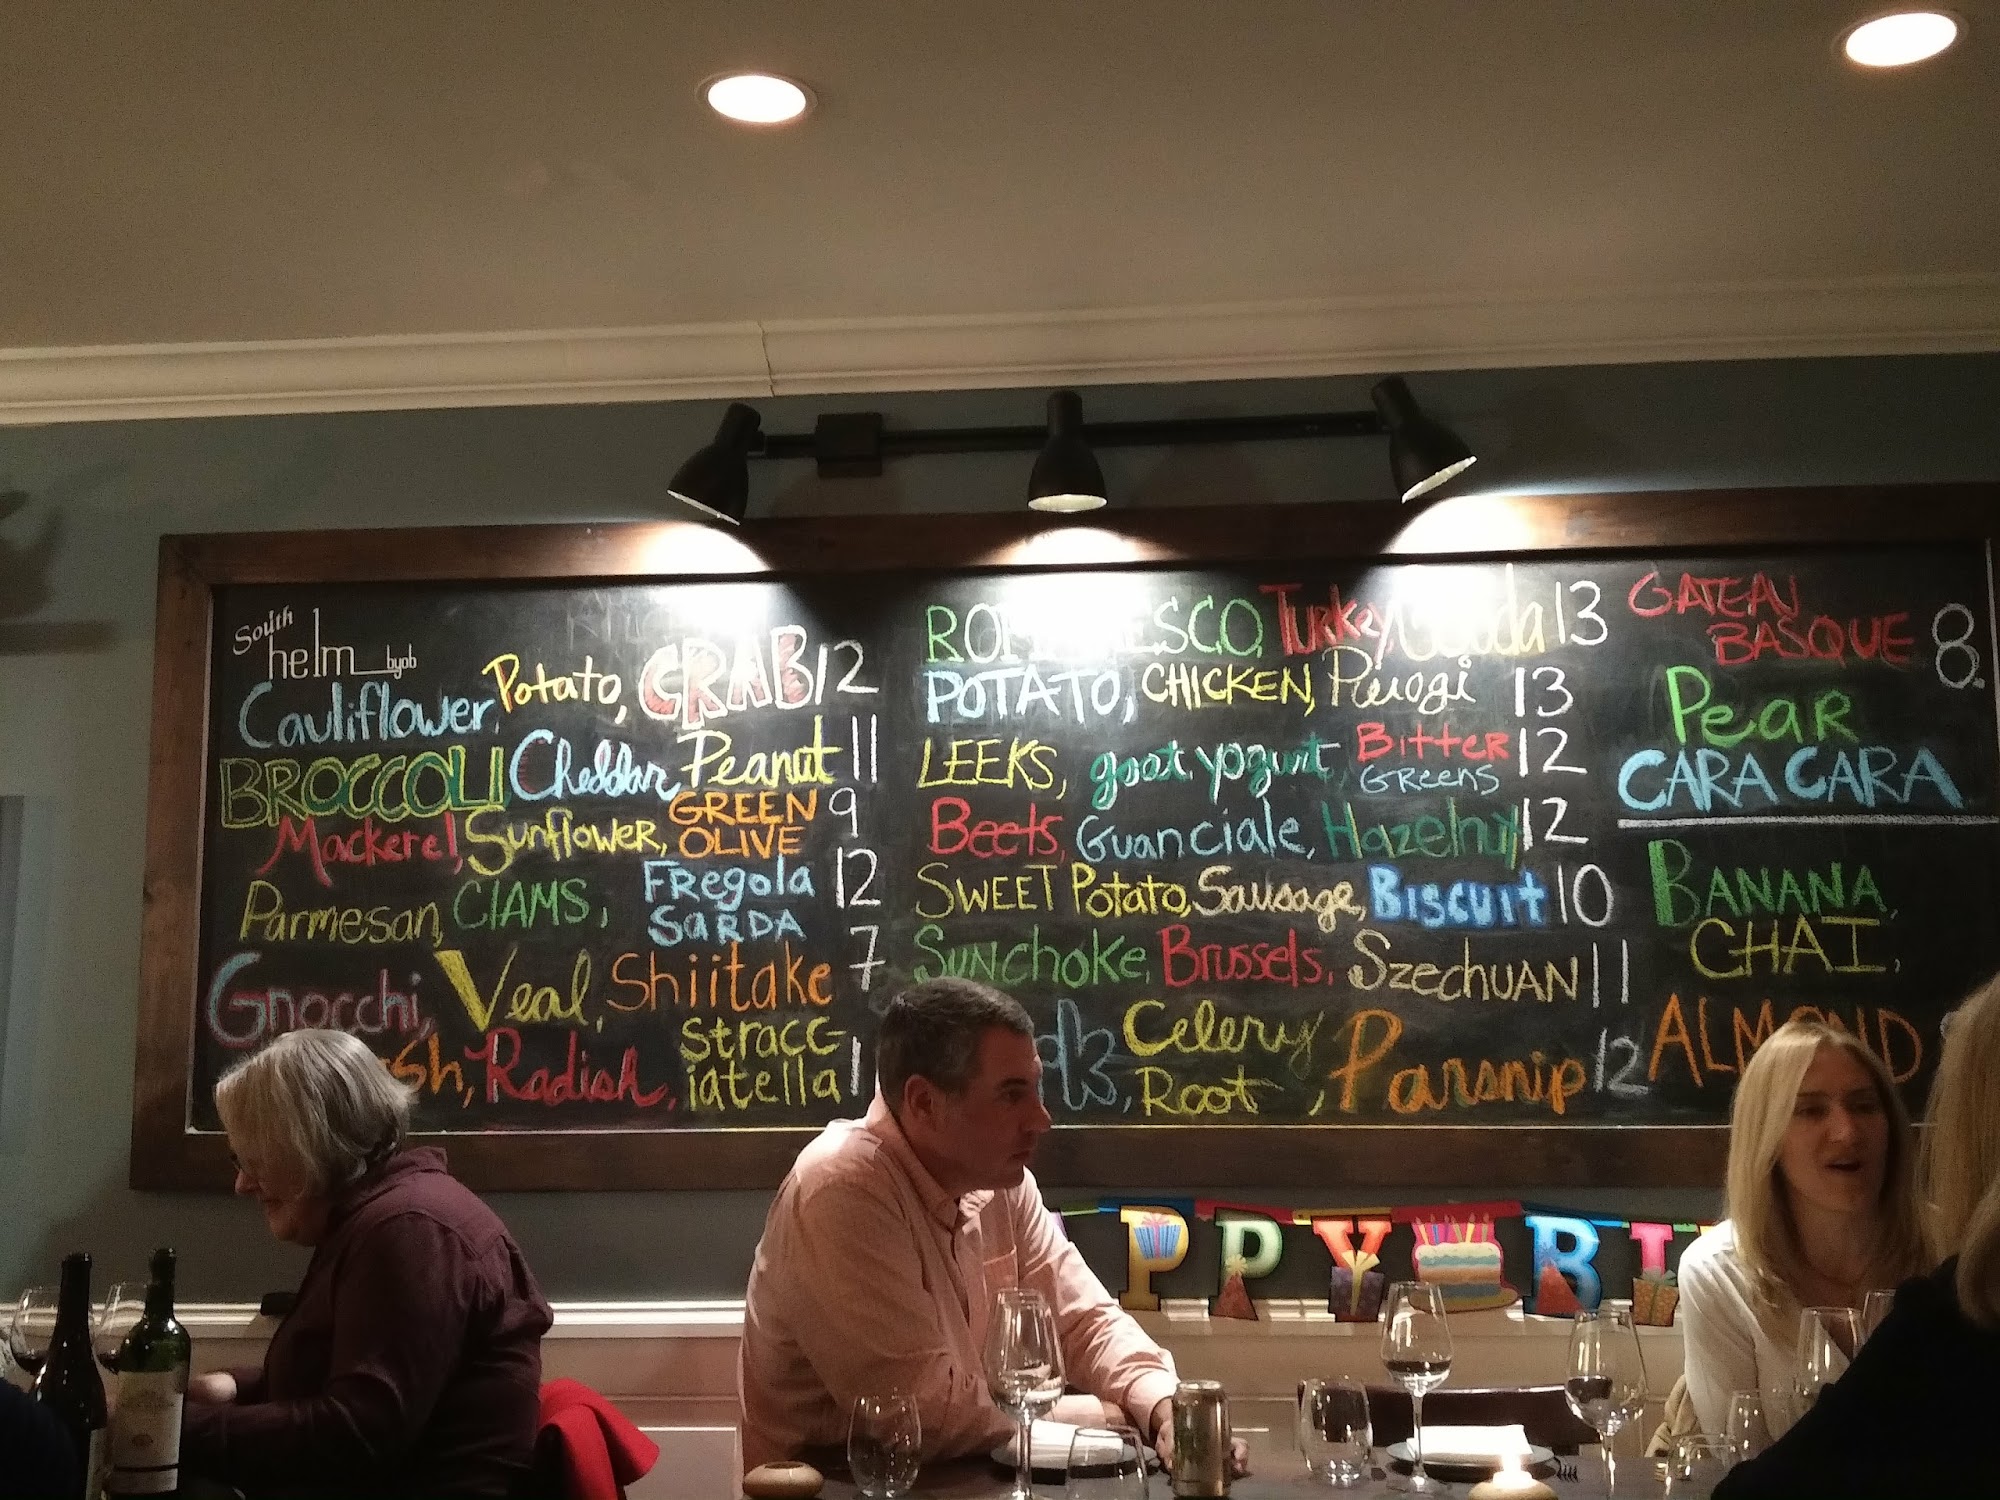 South
helm byob
Cauliflower, Potato, CRAB 12
BROCCOLI, Cheddar, Peanut 11
Mackerel, Sunflower, GREEN OLIVE 9
Parmesan, ClAMS, FRegola SaRDA 12
Gnocchi, Veal, Shiitake 7
Radish, stracc-
iatella
Turkey, 13
POTATO, CHICKEN, Pierogi 13
LEEKS, goat yogurt, Bitter GREENS 12
Beets, Guanciale, Hazelnut 12
SWEET Potato, Sausage, BiSCUit 10
SunCHOKe, Brussels, SzecHUAN 11
Celery Root, Parsnip 12
GATEAU
BASQUE 8.
PeaR
CARA CARA
BANANA,
CHAI,
ALMOND
PPY BI